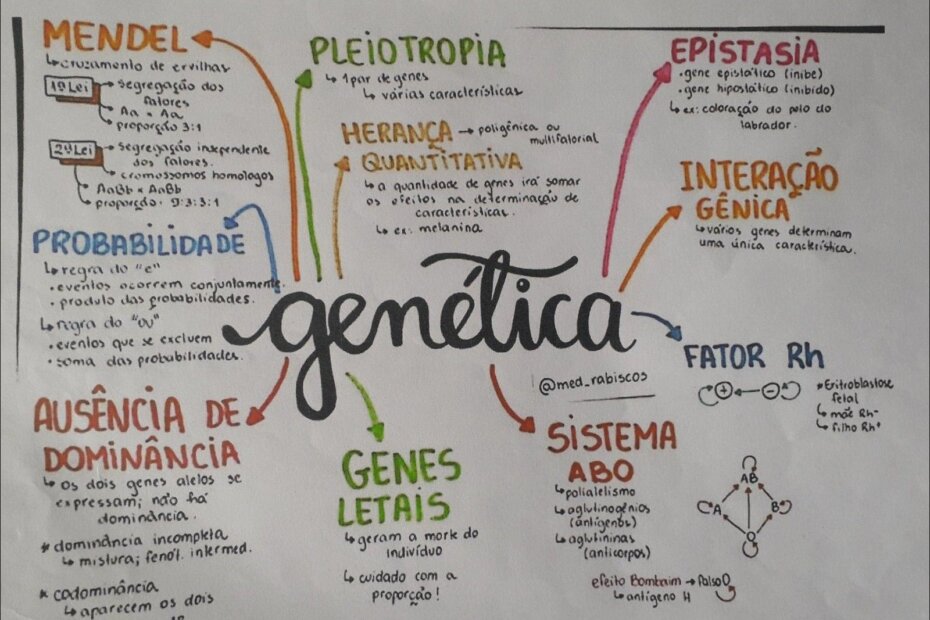 MENDEL
↳ cruzamento de ervilhas
1ª Lei → segregação dos
fatores
Aa × Aa
proporção 3:1
2ª Lei → segregação independente
dos fatores.
cromossomos homologos
AaBb × AaBb
proporção. 9:3:3:1
PLEIOTROPIA
↳ 1 par de genes
↳ várias características
HERANÇA → poligênica ou
multifatorial
QUANTITATIVA
↳ a quantidade de genes irá somar
os efeitos na determinação de
características.
↳ ex: melanina
EPISTASIA
• gene epistático (inibe)
• gene hipostático (inibido)
↳ ex: coloração do pelo do
labrador.
INTERAÇÃO
GÊNICA
↳ vários genes determinam
uma única característica.
PROBABILIDADE
↳ regra do "e"
• eventos ocorrem conjuntamente.
• produto das probabilidades.
↳ regra do "ou"
• eventos que se excluem
• soma das probabilidades.
genética
@med_rabiscos
FATOR Rh
+ ← -
* Eritroblastose
fetal
↳ mãe Rh-
↳ filho Rh+
AUSÊNCIA DE
DOMINÂNCIA
↳ os dois genes alelos se
expressam; não há
dominância.
* dominância incompleta
↳ mistura; fenót. intermed.
* codominância
↳ aparecem os dois
GENES
LETAIS
↳ geram a morte do
indivíduo
↳ cuidado com a
proporção!
SISTEMA
ABO
↳ polialelismo
↳ aglutinogênios
(antígenos)
↳ aglutininas
(anticorpos)
AB
A B
O
efeito Bombaim → falso O
↳ antígeno H